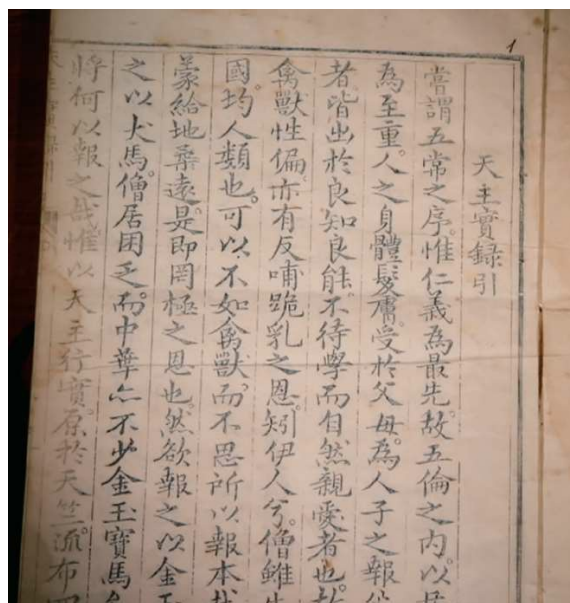 1
天主實錄引
嘗謂五常之序。惟仁義為最先。故五倫之內。以
為至重。人之身體髮膚。受於父母。為人子之報
者皆出於良知良能。不待學而自然親愛者也。故
禽獸性偏。亦有反哺跪乳之恩。矧伊人兮。僧雖
國。均人類也。可以不如禽獸。而不思所以報本
蒙給地柔遠。是即罔極之恩也。然欲報之以金
之以犬馬。僧居困乏。而中華亦不少金玉寶馬
將何以報之哉。惟以 天主行實。原於天竺。流布